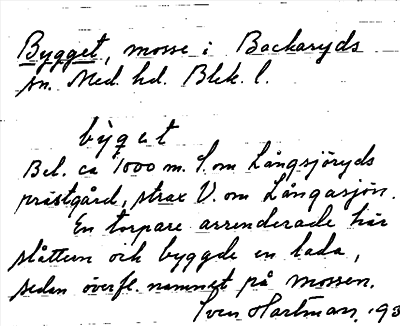 Bygget, mosse i Backaryds
sn. Med. hd. Blek. l.
byget
Bel. ca 1000 m. S. om Långsjöryds
prästgård, strax V. om Långasjön.
En torpare arrenderade här
slåttern och byggde en lada,
sedan överfl. namnet på mossen.
Sven Hartman. 193